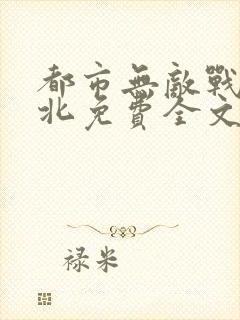 都市無敵戰
北免費全文
禄米